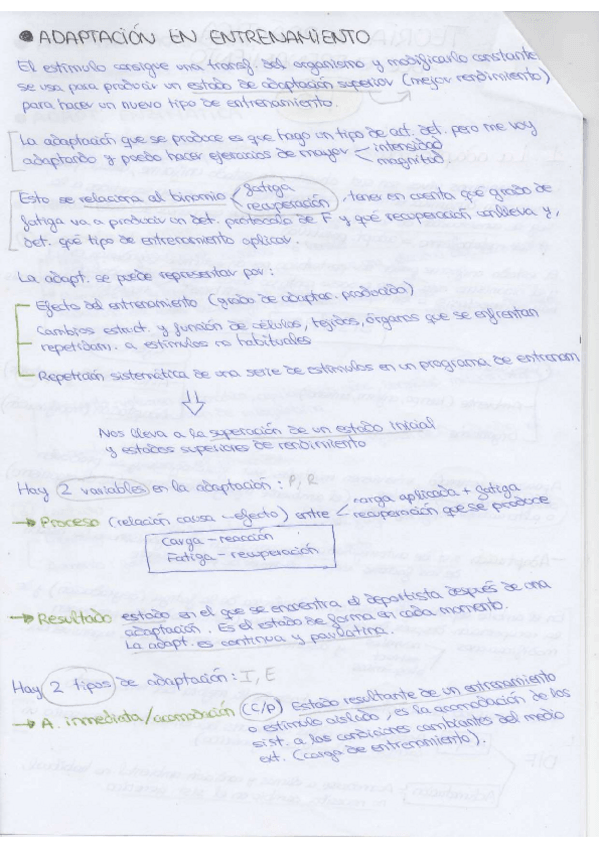 ● ADAPTACIÓN EN ENTRENAMIENTO
El estímulo consigue una transf. del organismo y modificarlo constante.
se usa para producir un estado de adaptación superior (mejor rendimiento)
para hacer un nuevo tipo de entrenamiento.
La adaptación que se produce es que hago un tipo de act. det. pero me voy
adaptando y puedo hacer ejercicios de mayor < intensidad
magnitud
Esto se relaciona al binomio < fatiga
recuperación, tener en cuenta qué grado de
fatiga va a producir un det. protocolo de F y qué recuperación conlleva y,
det. qué tipo de entrenamiento aplicar.
La adapt. se puede representar por:
- Efecto del entrenamiento (grado de adaptac. producido)
- Cambios estruct. y función de células, tejidos, órganos que se enfrentan
repetidam. a estímulos no habituales
- Repetición sistemática de una serie de estímulos en un programa de entrenam
Nos lleva a la superación de un estado inicial
y estados superiores de rendimiento
Hay 2 variables en la adaptación: P, R
→ Proceso (relación causa-efecto) entre < carga aplicada + fatiga
recuperación que se produce
Carga - reacción
Fatiga - recuperación
→ Resultado estado en el que se encuentra el deportista después de una
adaptación. Es el estado de forma en cada momento.
La adapt. es continua y paulatina.
Hay 2 tipos de adaptación: I, E
→ A. inmediata/acomodación (C/P) Estado resultante de un entrenamiento
o estímulo aislado, es la acomodación de los
sist. a las condiciones cambiantes del medio
ext. (carga de entrenamiento).